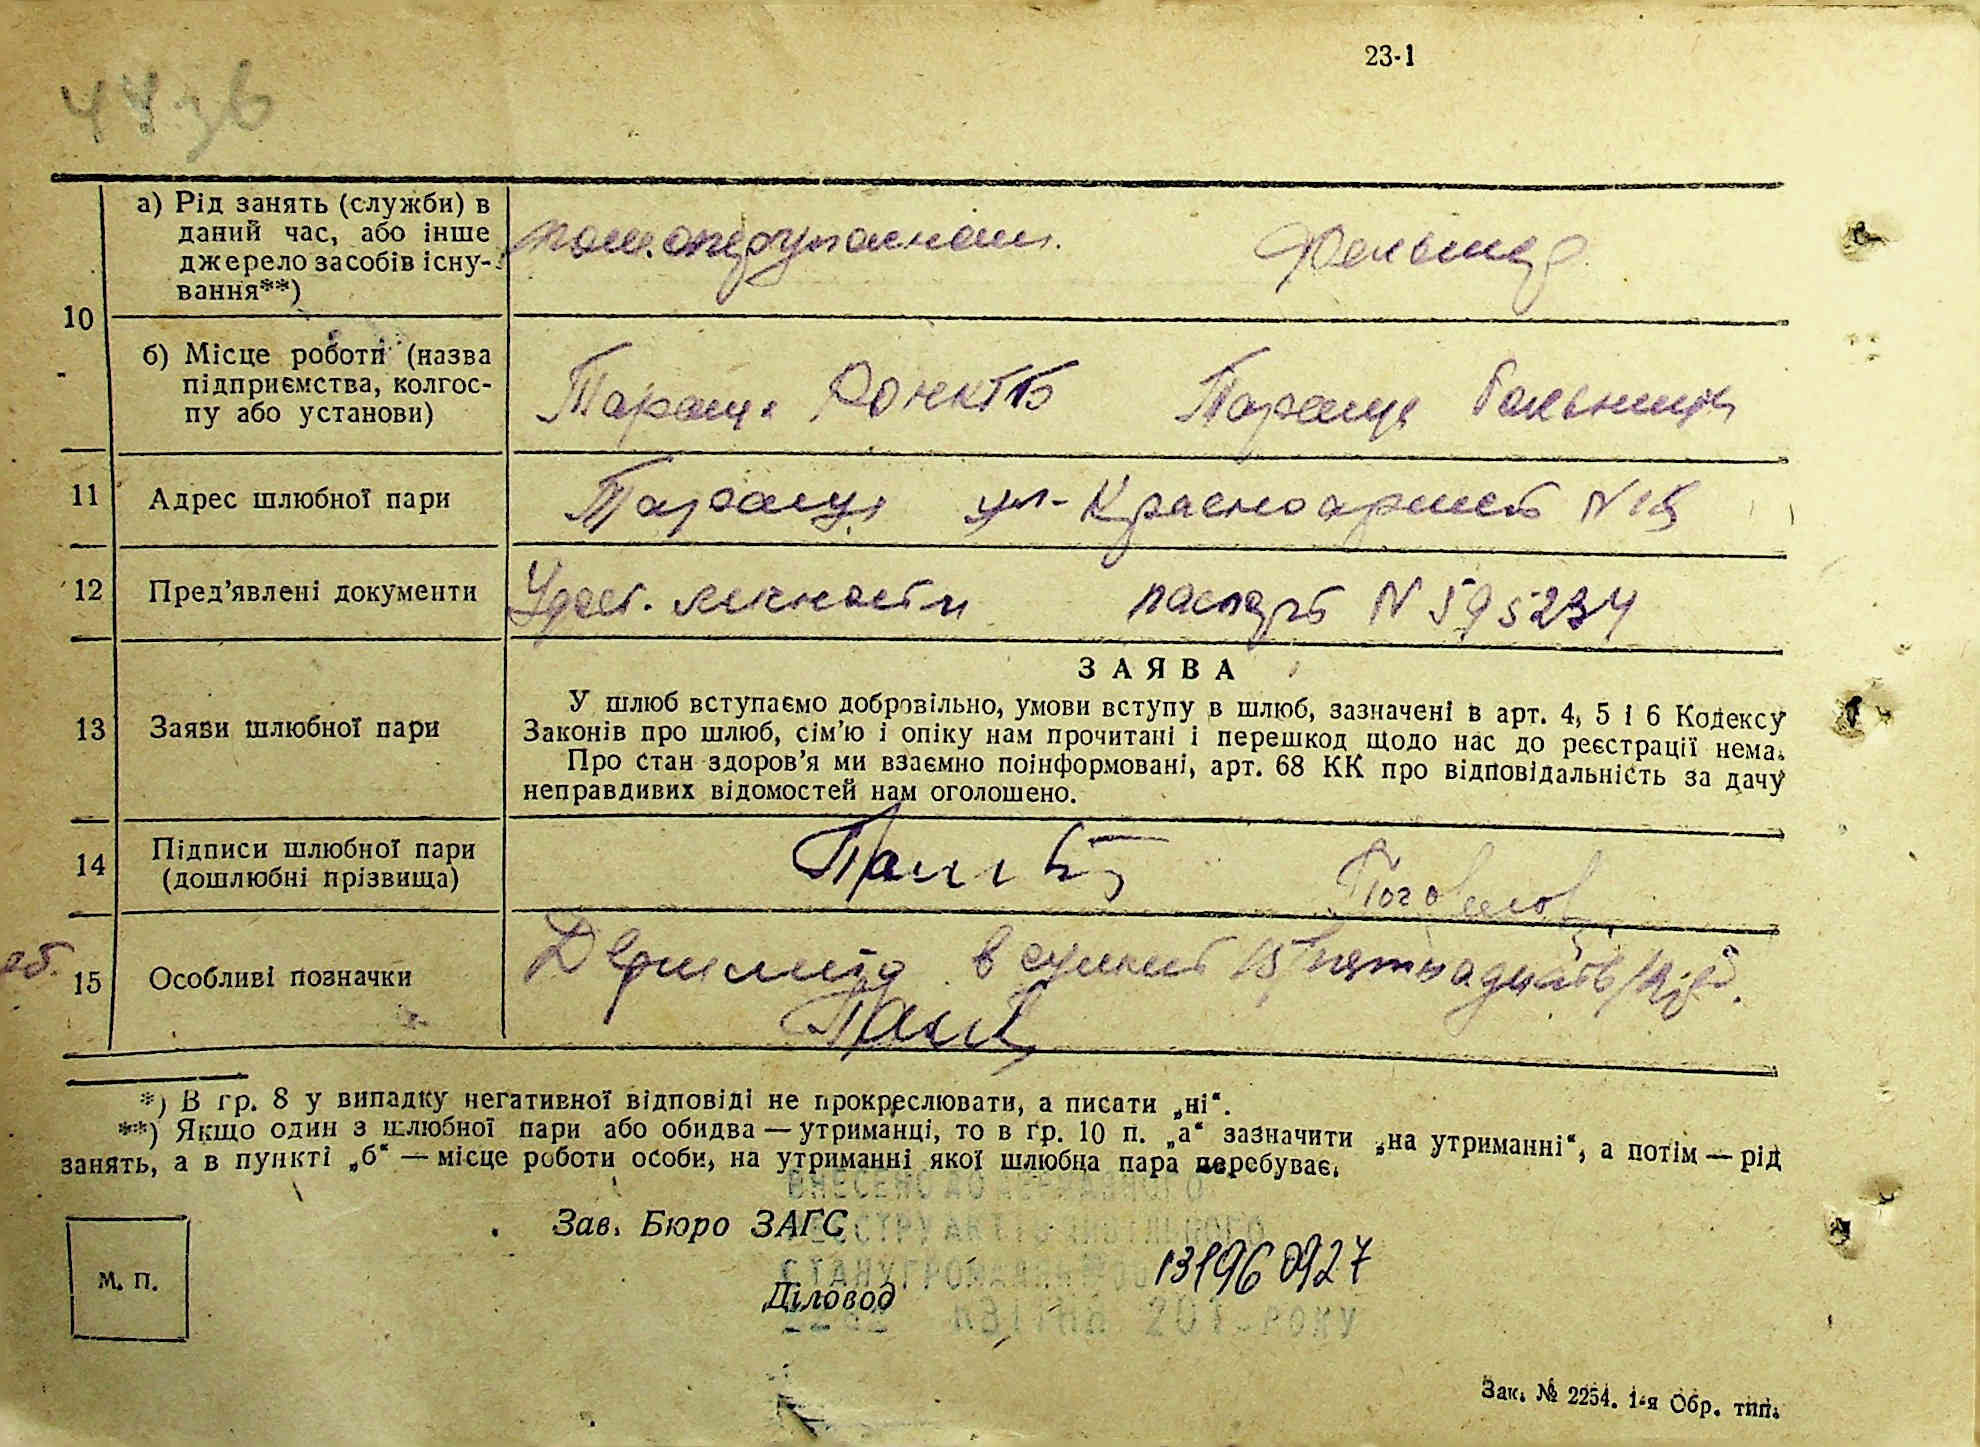 23-1
10
а) Рід занять (служби) в
даний час, або інше
джерело засобів існу-
вання**)
Фельшер
б) Місце роботи (назва
підприємства, колгос-
пу або установи)
Тараща
Тараща больница
11
Адрес шлюбної пари
Тараща ул-Красноармей N
12
Пред'явлені документи
Удост. личности паспорт N 595234
13
Заяви шлюбної пари
ЗАЯВА
У шлюб вступаємо добровільно, умови вступу в шлюб, зазначені в арт. 4, 5 і 6 Кодексу
Законів про шлюб, сім'ю і опіку нам прочитані і перешкод щодо нас до реєстрації нема.
Про стан здоров'я ми взаємно поінформовані, арт. 68 КК про відповідальність за дачу
неправдивих відомостей нам оголошено.
14
Підписи шлюбної пари
(дошлюбні прізвища)
15
Особливі позначки
в сумме 15/пятнадцать/
*) В гр. 8 у випадку негативної відповіді не прокреслювати, а писати „ні“.
**) Якщо один з шлюбної пари або обидва — утриманці, то в гр. 10 п. „а“ зазначити „на утриманні“, а потім — рід
занять, а в пункті „б“ — місце роботи особи, на утриманні якої шлюбна пара перебуває.
ВНЕСЕНО ДО ДЕРЖАВНОГО
РЕЄСТРУ АКТІВ ЦИВІЛЬНОГО
СТАНУ ГРОМАДЯН
КВІТНЯ 201 РОКУ
Зав. Бюро ЗАГС
Діловод
М. П.
Зак. № 2254. 1-я Обр. тип.